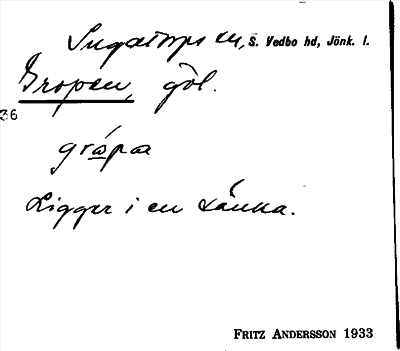 Ingatorps sn, S. Vedbo hd, Jönk. l.
Gropen, göl.
36
gråpa
Ligger i en sänka.
FRITZ ANDERSSON 1933